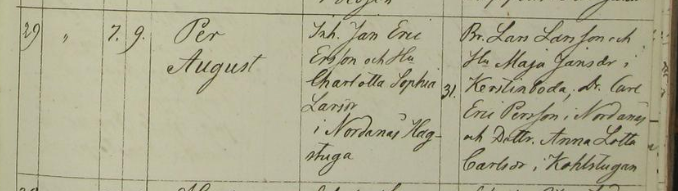 29 " 7. 9. Per August
Inh. Jan Eric
Ersson och Hu
Charlotta Sophia
Larsdr
i Nordanäs Hag-
stuga
31.
Br. Lars Larsson och
Hu Maja Jansdr i
Kerstinboda, Dr. Carl
Eric Persson i Nordanäs
och Dottr. Anna Lotta
Carlsdr i Kohlstugan